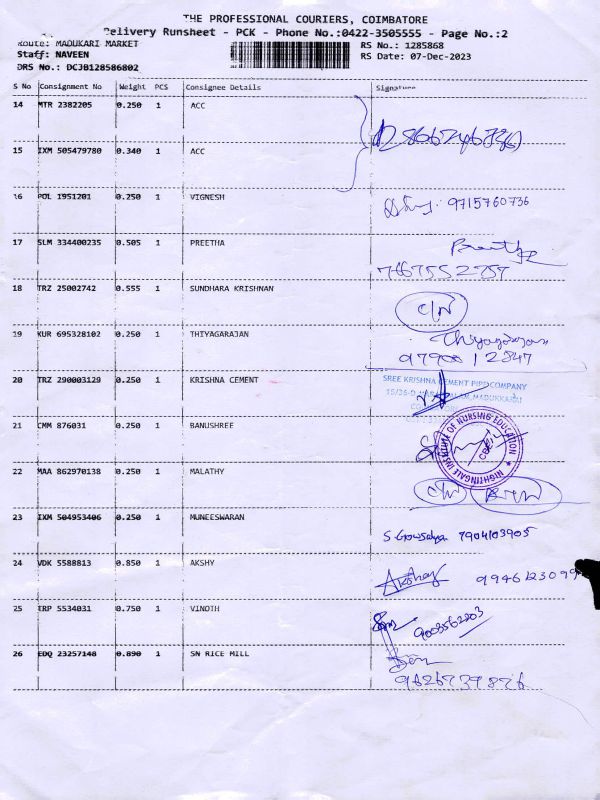 THE PROFESSIONAL COURIERS, COIMBATORE
Delivery Runsheet - PCK - Phone No.:0422-3505555 - Page No.:2
Route: MADUKARI MARKET
Staff: NAVEEN
DRS No.: DCJB128586802
RS No.: 1285868
RS Date: 07-Dec-2023
S No Consignment No Weight PCS Consignee Details Signature
14 MTR 2382205 0.250 1 ACC
15 IXM 505479780 0.340 1 ACC
16 POL 1951201 0.250 1 VIGNESH 9715760736
17 SLM 334400235 0.505 1 PREETHA Preetha
7667552757
18 TRZ 25002742 0.555 1 SUNDHARA KRISHNAN
19 KUR 695328102 0.250 1 THIYAGARAJAN Thiyagarajan
9790012847
20 TRZ 290003129 0.250 1 KRISHNA CEMENT SREE KRISHNA CEMENT PIPE COMPANY
21 CMM 876031 0.250 1 BANUSHREE NIGHTINGALE INSTITUTE OF NURSING EDUCATION
22 MAA 862970138 0.250 1 MALATHY
23 IXM 504953406 0.250 1 MUNEESWARAN S Gowsalya 7904103905
24 VDK 5588813 0.850 1 AKSHY Akshay
25 ERP 5534031 0.750 1 VINOTH 9003562203
26 EDQ 23257148 0.890 1 SN RICE MILL
9626739876